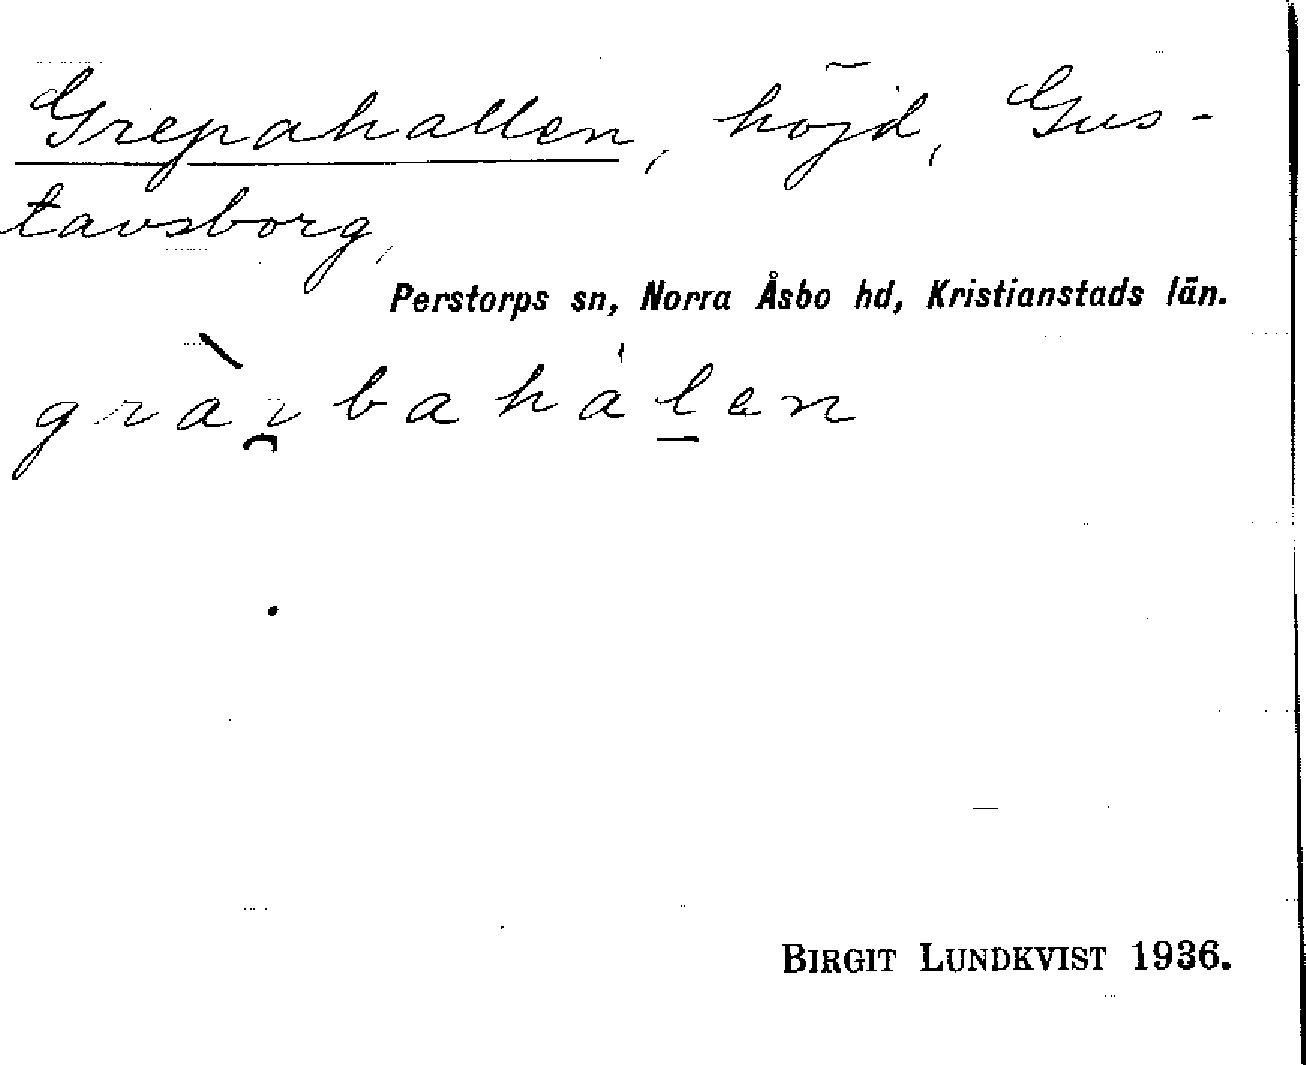 Grepahallen, höjd, Gus-
tavsborg,
Perstorps sn, Norra Åsbo hd, Kristianstads län.
gràɪ̯bahálen
BIRGIT LUNDKVIST 1936.